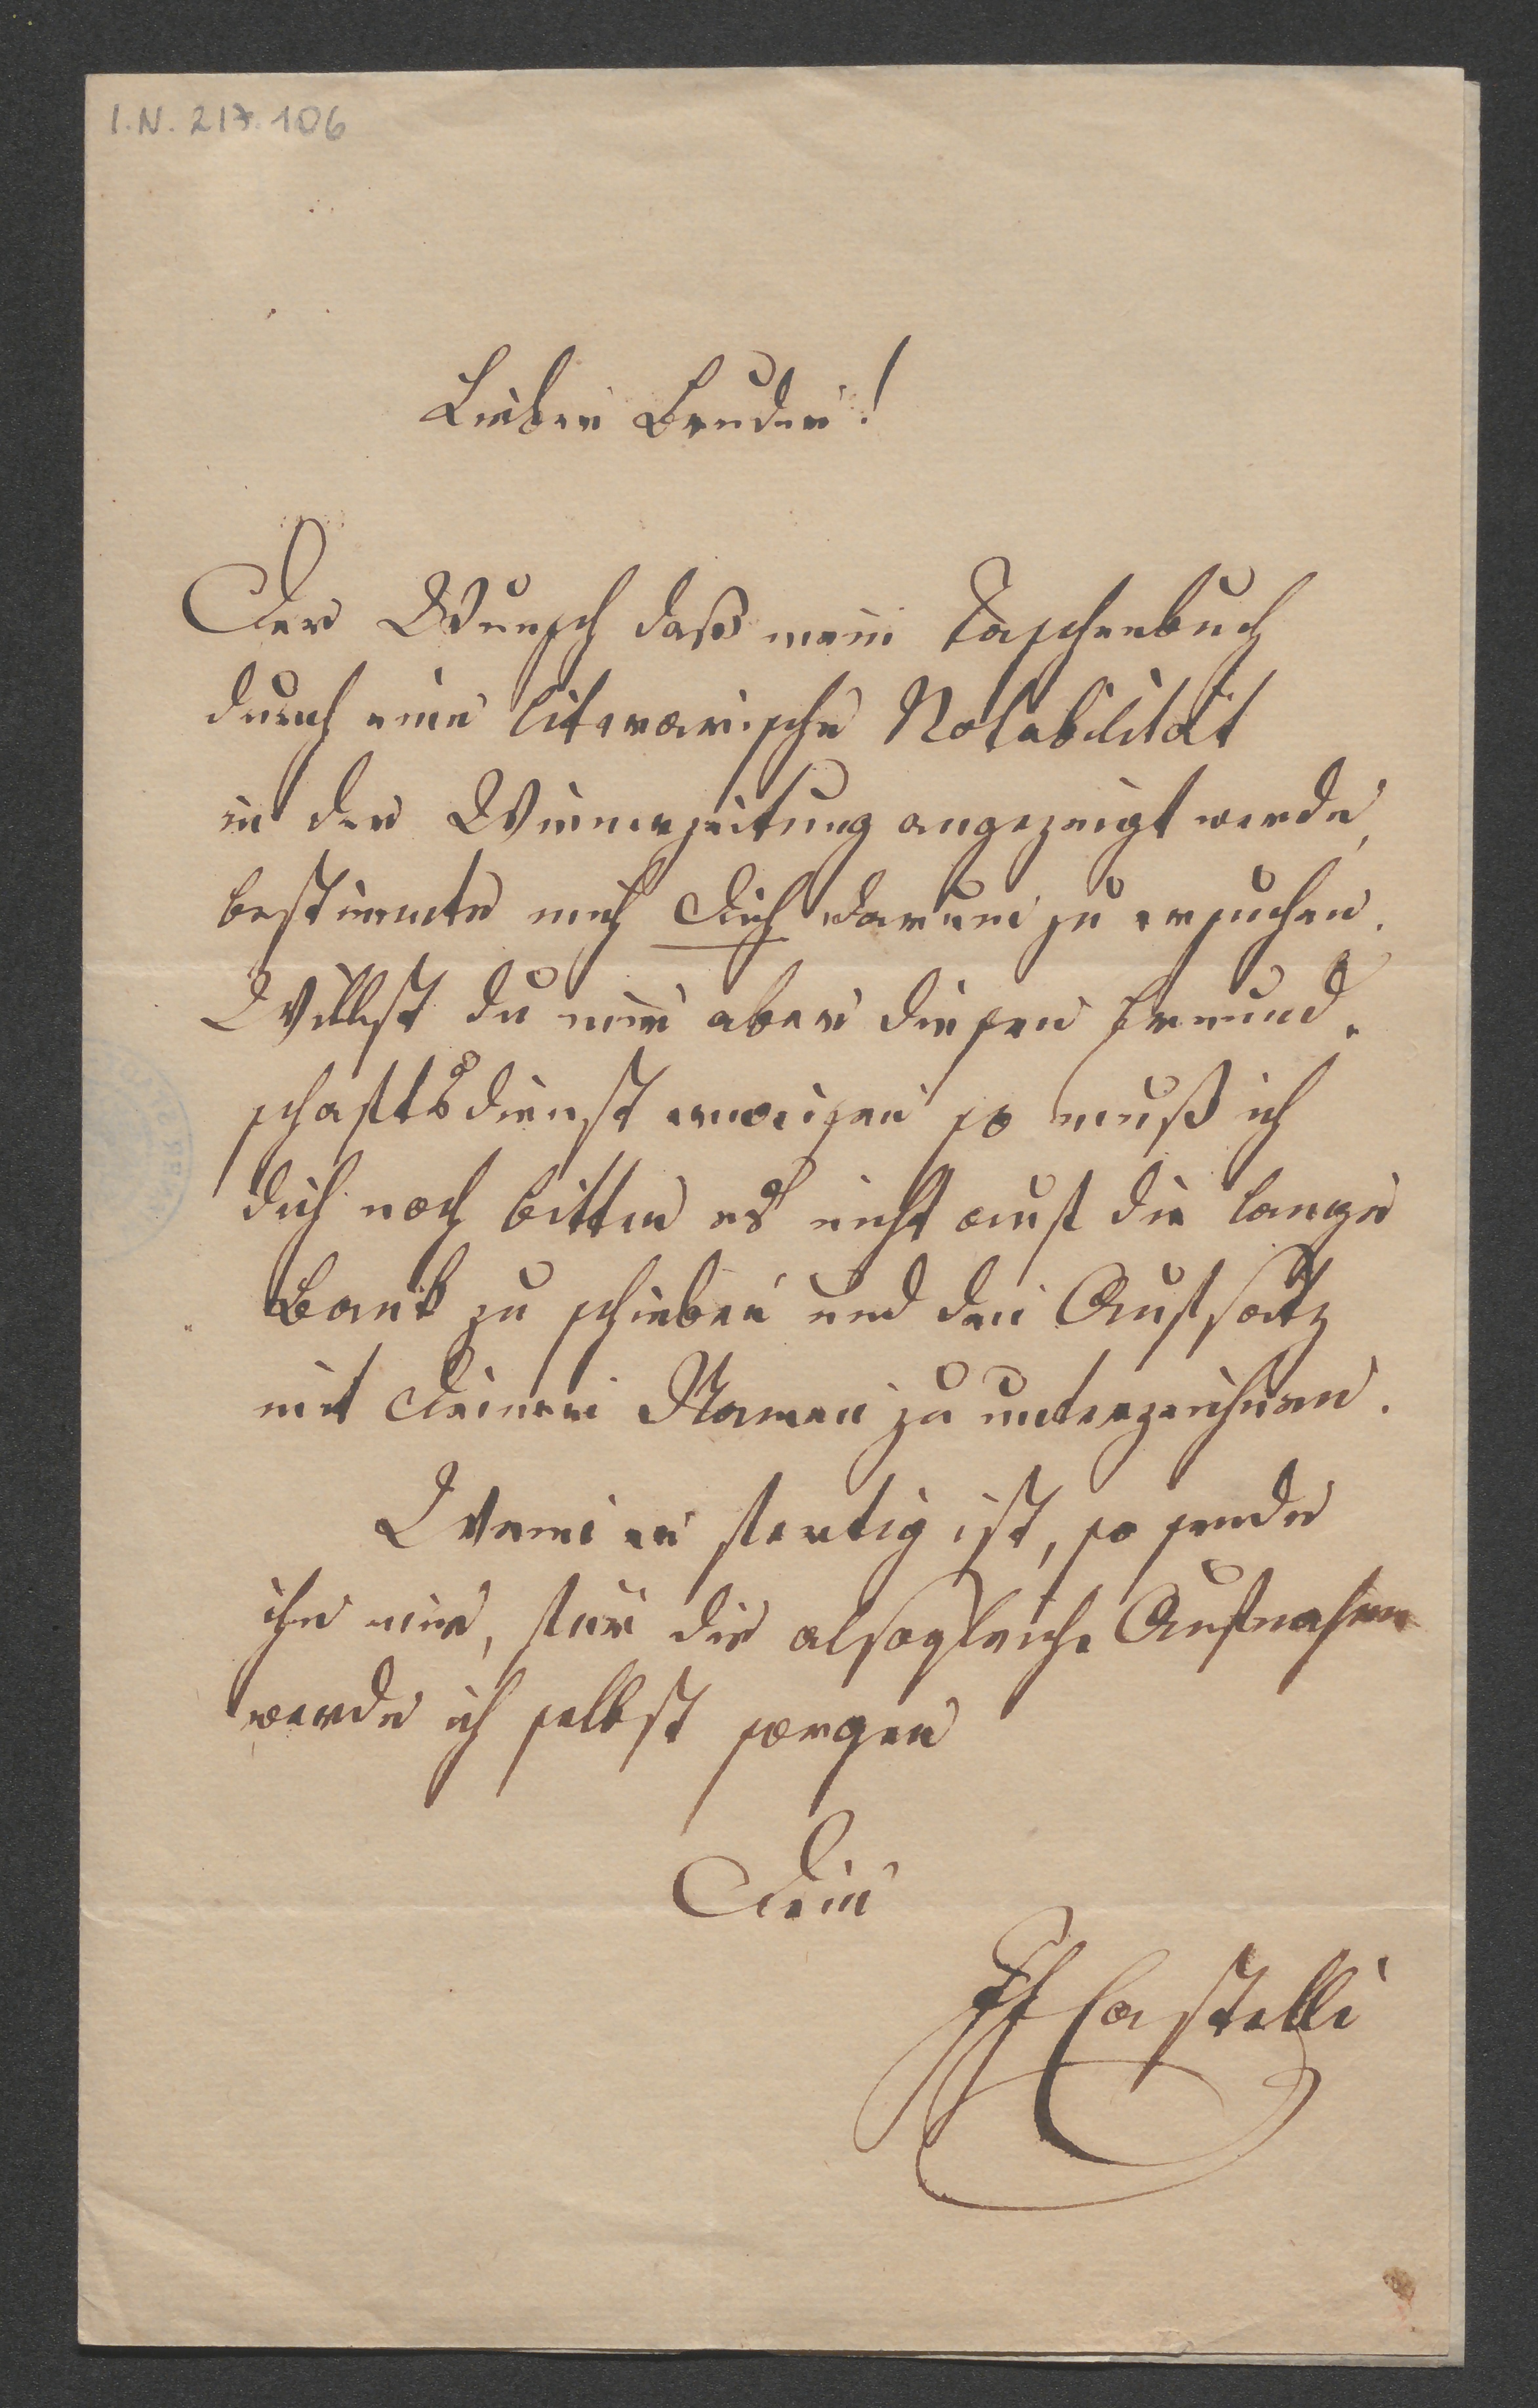 I.N. 217.106
Lieber Bruder!
Der Wunsch daß mein Taschenbuch
durch eine literarische Notabilität
in der Wienerzeitung angezeigt werde,
bestimmte mich Dich darum zu ersuchen.
Willst du mir aber diesen Freund-
schaftsdienst erweisen so muß ich
dich noch bitten es nicht auf die lange
Bank zu schieben und den Aufsatz
mit Deinem Namen zu unterzeichnen.
Wenn er fertig ist, so sende
ihn mir, für die alsogleiche Aufnahme
werde ich selbst sorgen
Dein
IF Castelli